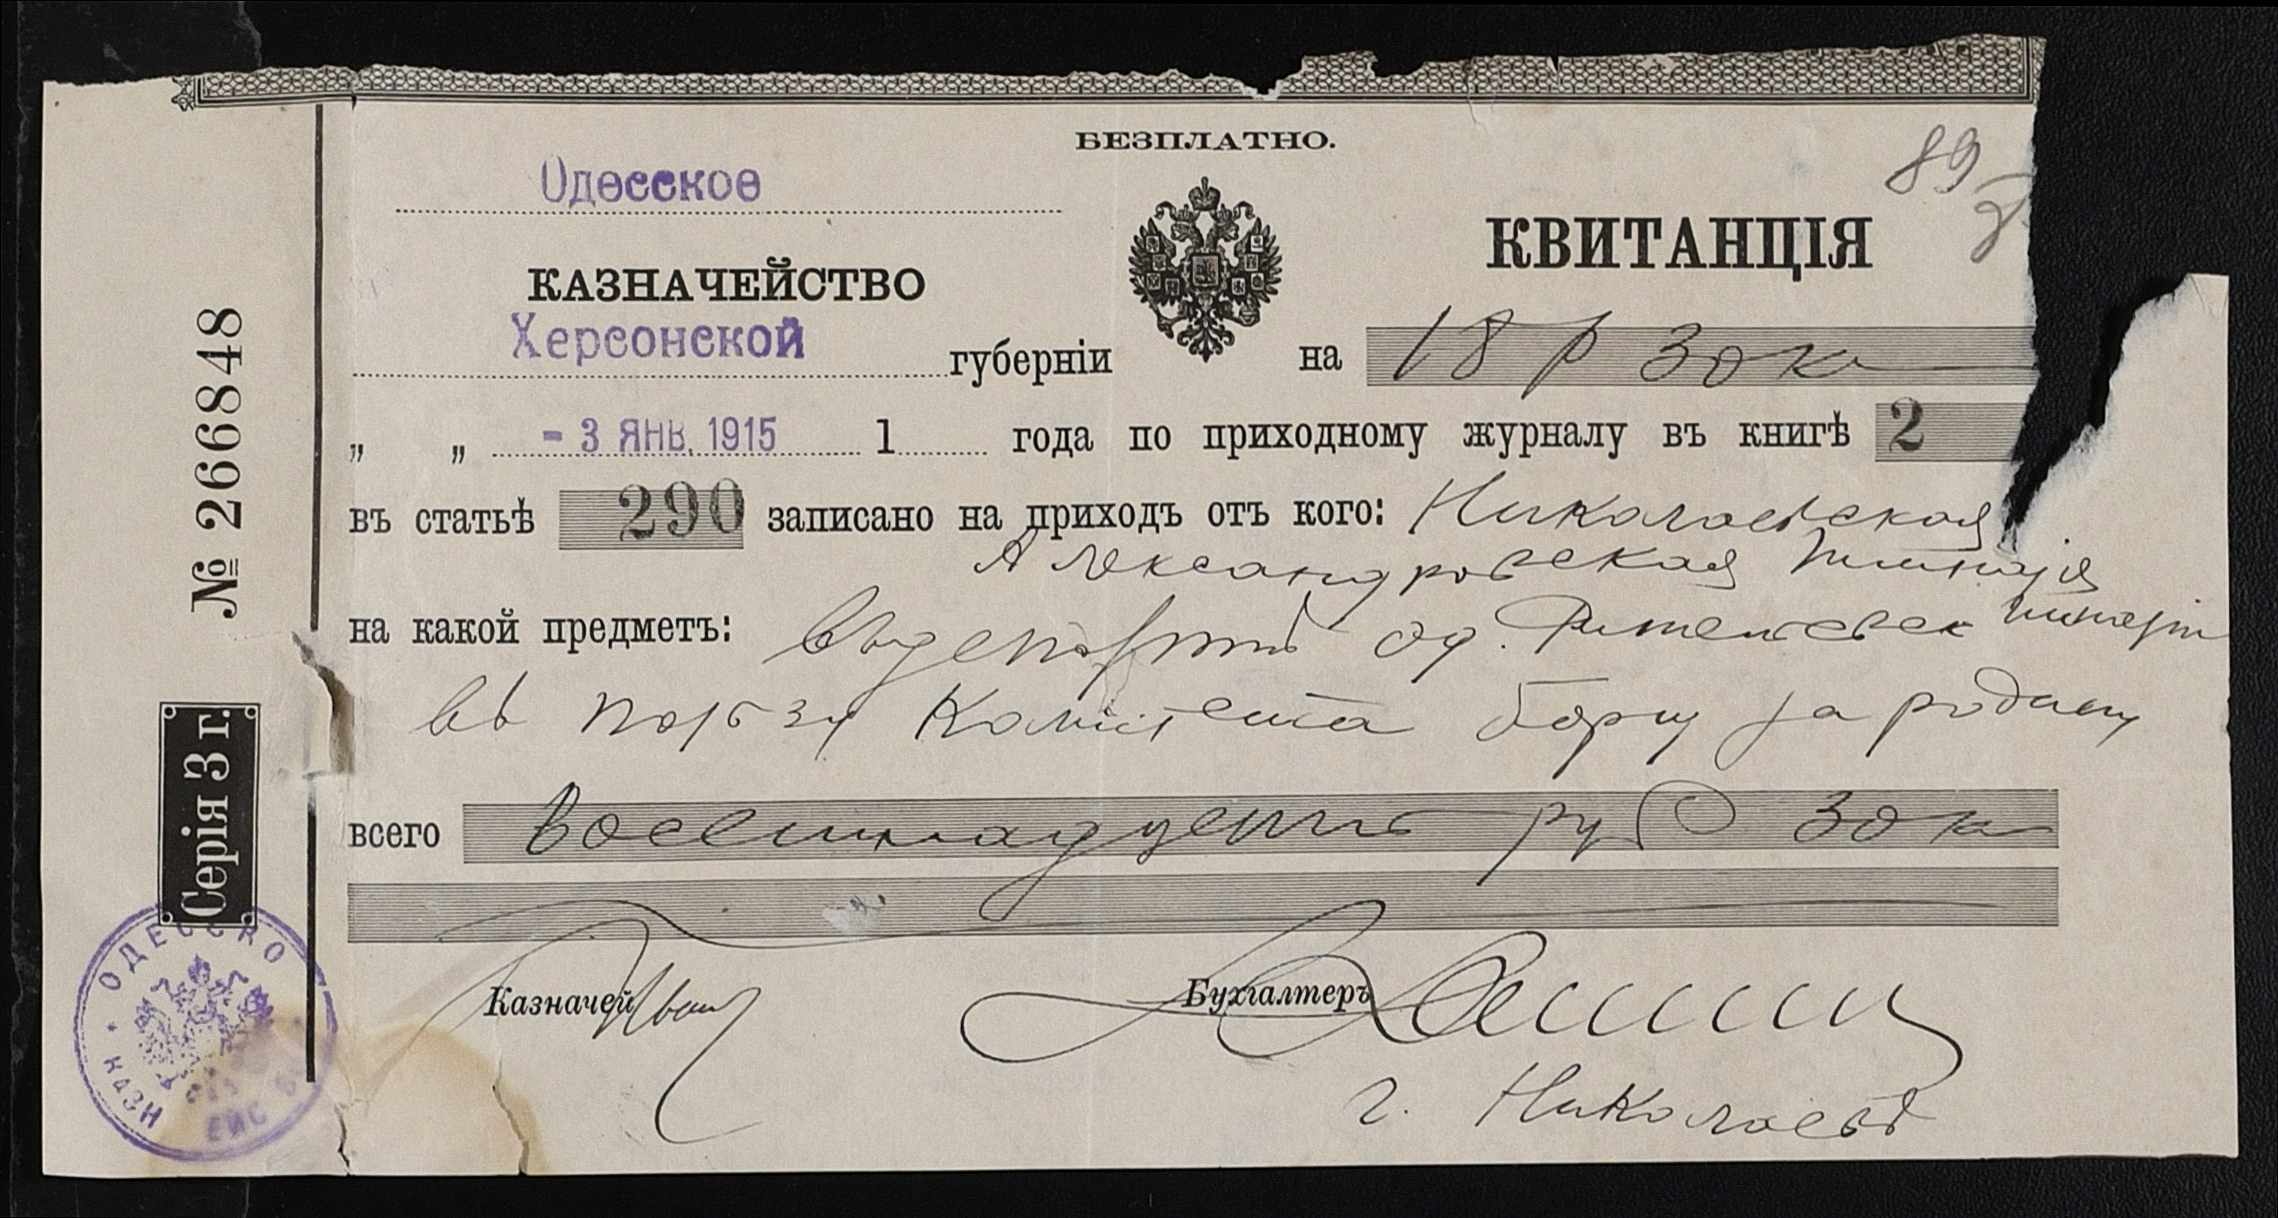 БЕЗПЛАТНО.
89
Одесское
КВИТАНЦІЯ
КАЗНАЧЕЙСТВО
Херсонской губерніи на 18 р 30 к
" " - 3 ЯНВ. 1915 1 года по приходному журналу въ книгѣ 2
въ статьѣ 290 записано на приходъ отъ кого: Николаевская
Александровская гимназія
на какой предметъ: въ депозитъ од. гимназіи
въ пользу Комитета борц за родину
всего Восемнадцать руб 30 к
Казначей
Бухгалтеръ
г. Николаевъ
№ 266848
Серія 3 г.
ОДЕССКО КАЗН ЕЙС